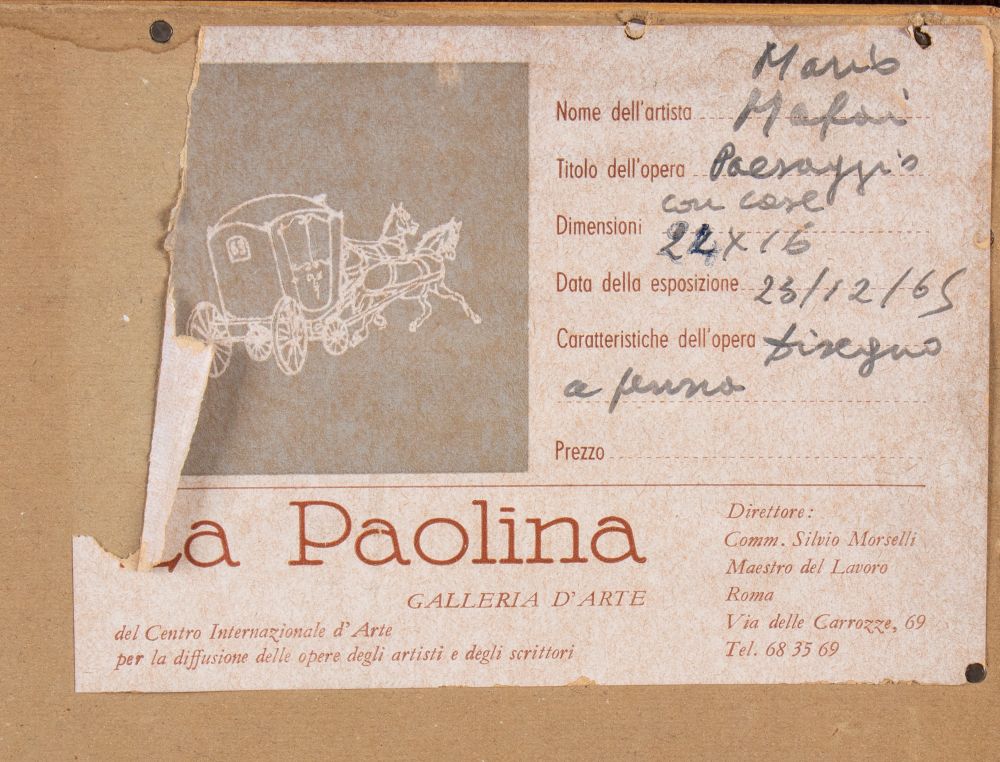 Mario
Nome dell'artista Mafai
Titolo dell'opera Paesaggio
con case
Dimensioni 22x16
Data della esposizione 23/12/65
Caratteristiche dell'opera disegno
a penna
Prezzo
La Paolina
GALLERIA D'ARTE
del Centro Internazionale d'Arte
per la diffusione delle opere degli artisti e degli scrittori
Direttore:
Comm. Silvio Morselli
Maestro del Lavoro
Roma
Via delle Carrozze, 69
Tel. 68 35 69